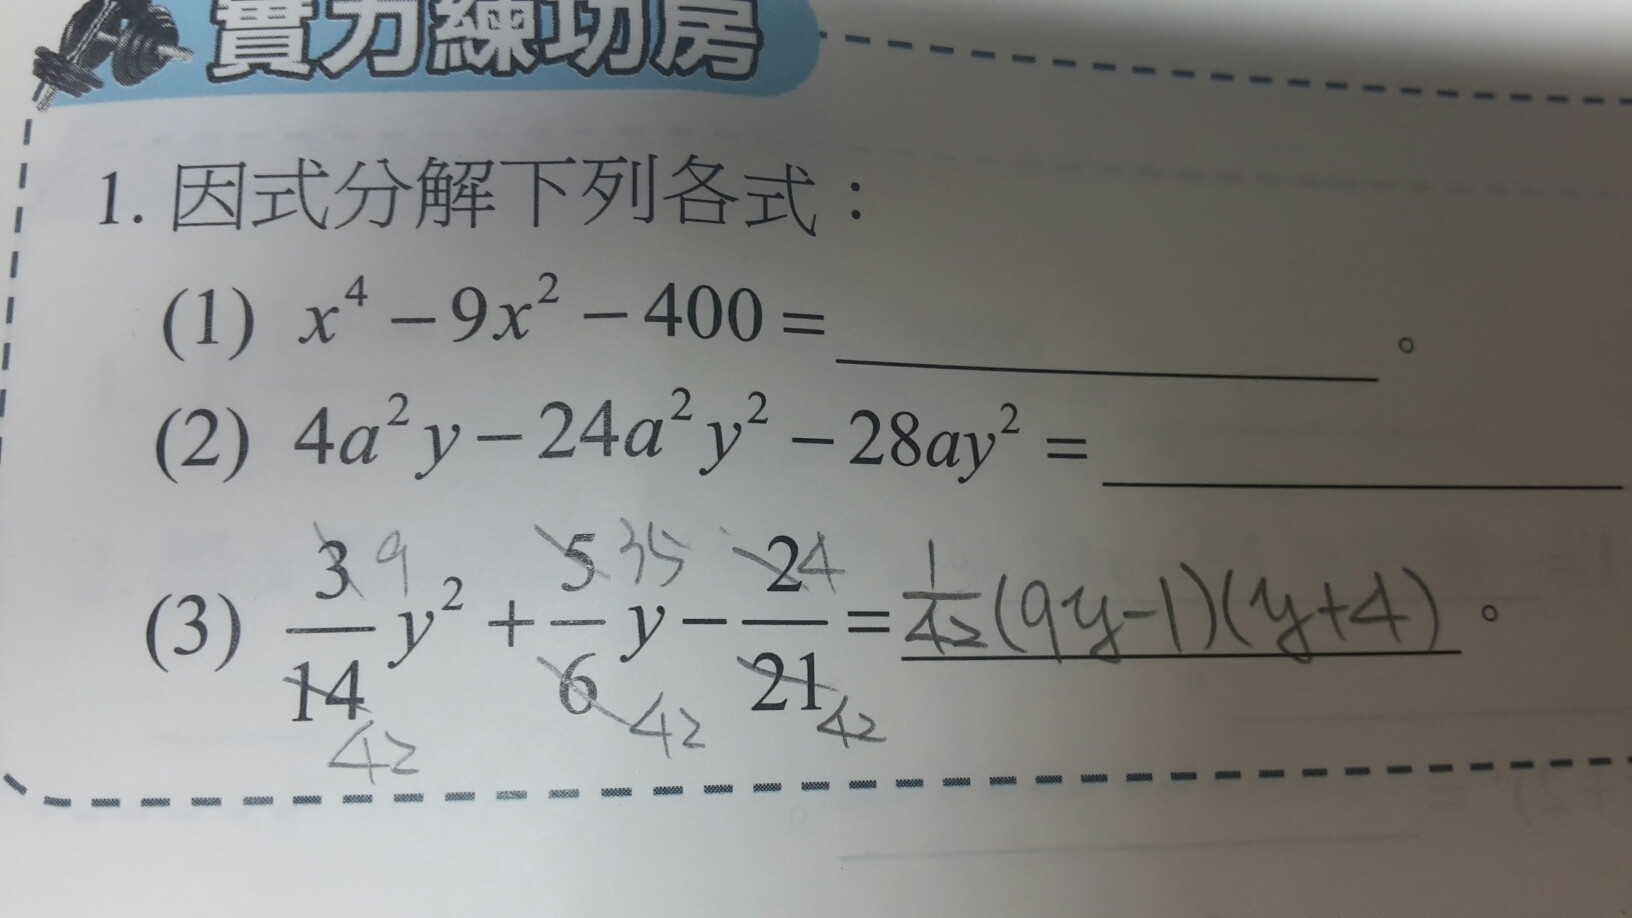 實力練功房
1. 因式分解下列各式：
(1) x⁴ − 9x² − 400 = ________ 。
(2) 4a²y − 24a²y² − 28ay² = ________
(3) 3/14 y² + 5/6 y − 2/21 = 1/42 (9y−1)(y+4) 。
9 35 4
42 42 42